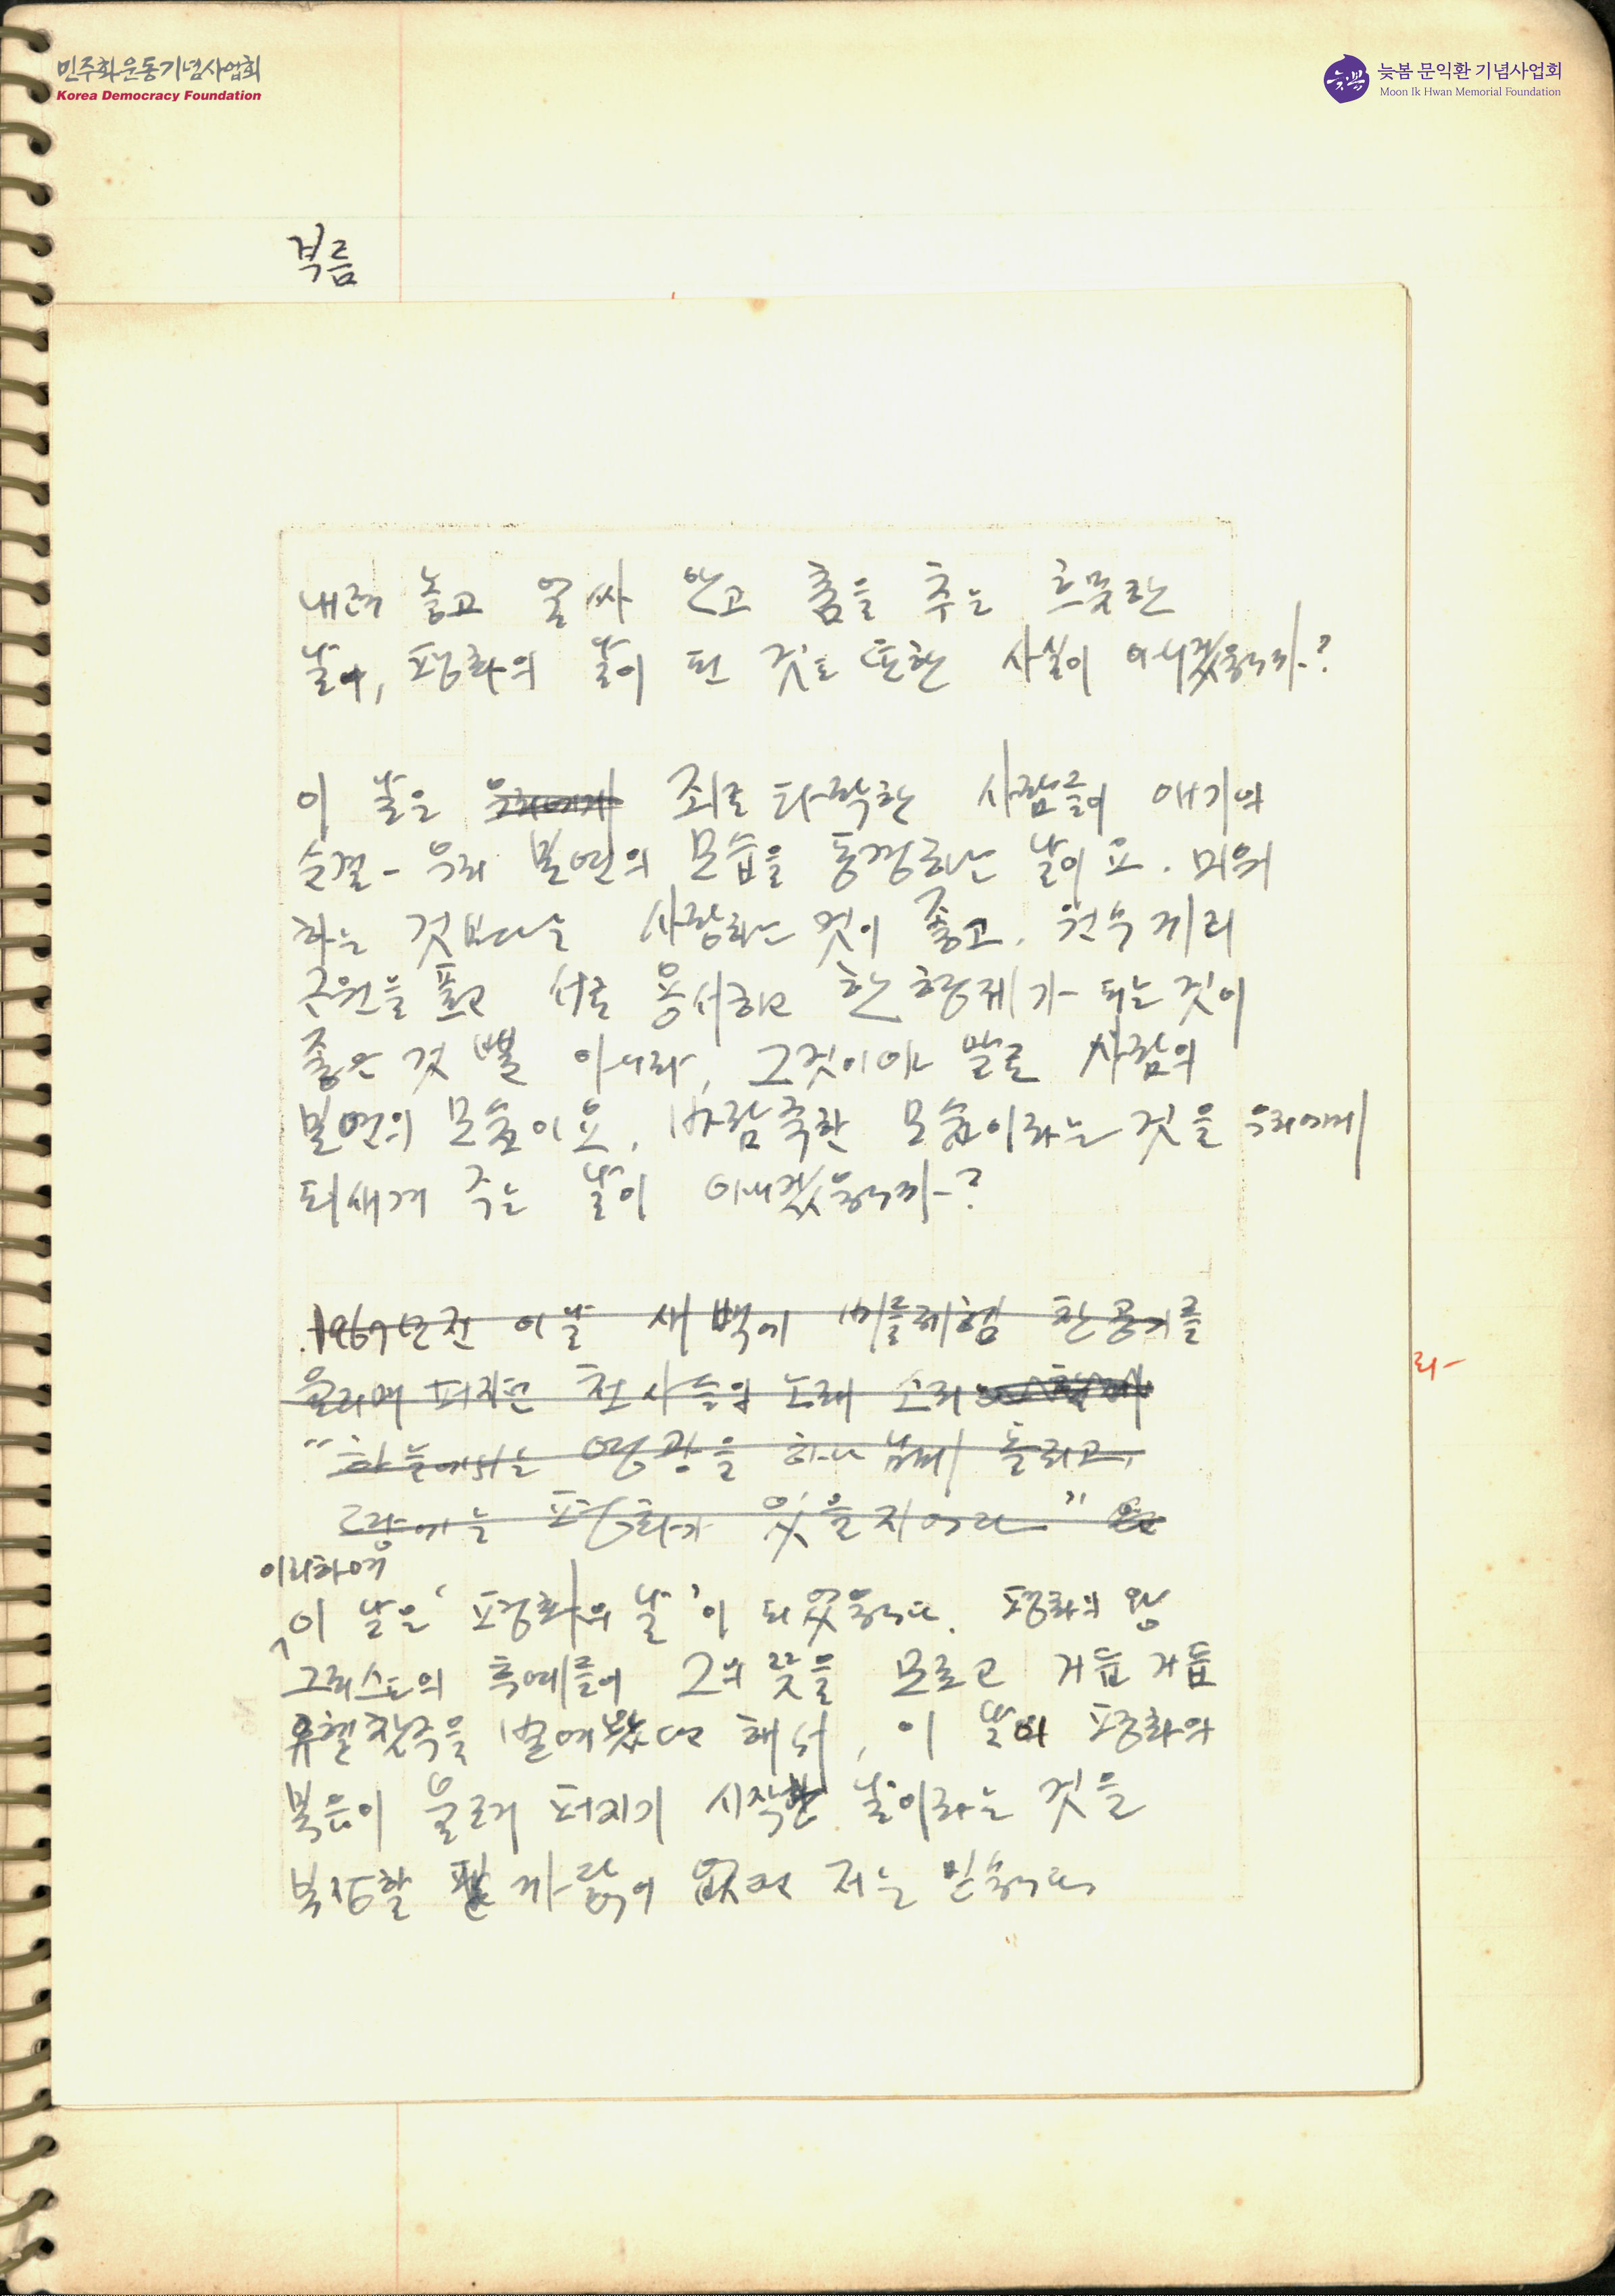 민주화운동기념사업회
Korea Democracy Foundation
늦봄 문익환 기념사업회
Moon Ik Hwan Memorial Foundation
내려 놓고 얼싸 안고 춤을 추는 흐뭇한
날이, 평화의 날이 된 것도 또한 사실이 아니겠읍니까?
이 날은 우리에게 죄로 타락한 사람들이 애기의
숨결 - 우리 본연의 모습을 동경하는 날이요. 미워
하는 것보다는 사랑하는 것이 좋고, 원수끼리
구원을 풀고 서로 용서하고 한 형제가 되는 것이
좋은 것 뿐 아니라, 그것이야 말로 사람의
본연의 모습이요, 바람직한 모습이라는 것을 우리에게
되새겨 주는 날이 아니겠읍니까?
1967년전 이날 새벽에 베들레헴 찬 공기를
울리며 퍼지던 천사들의 노래 소리
"하늘에서는 영광을 하나님께 돌리고,
땅에는 평화가 있을지어다"
이리하여
이 날은 '평화의 날'이 되었읍니다. 평화의 왕
그리스도의 후예들이 그의 뜻을 모르고 거듭 거듭
유혈 을 벌여왔다고 해서, 이 날이 평화의
복음이 울려 퍼지기 시작한 날이라는 것을
할 까닭이 없다고 저는 믿습니다
라